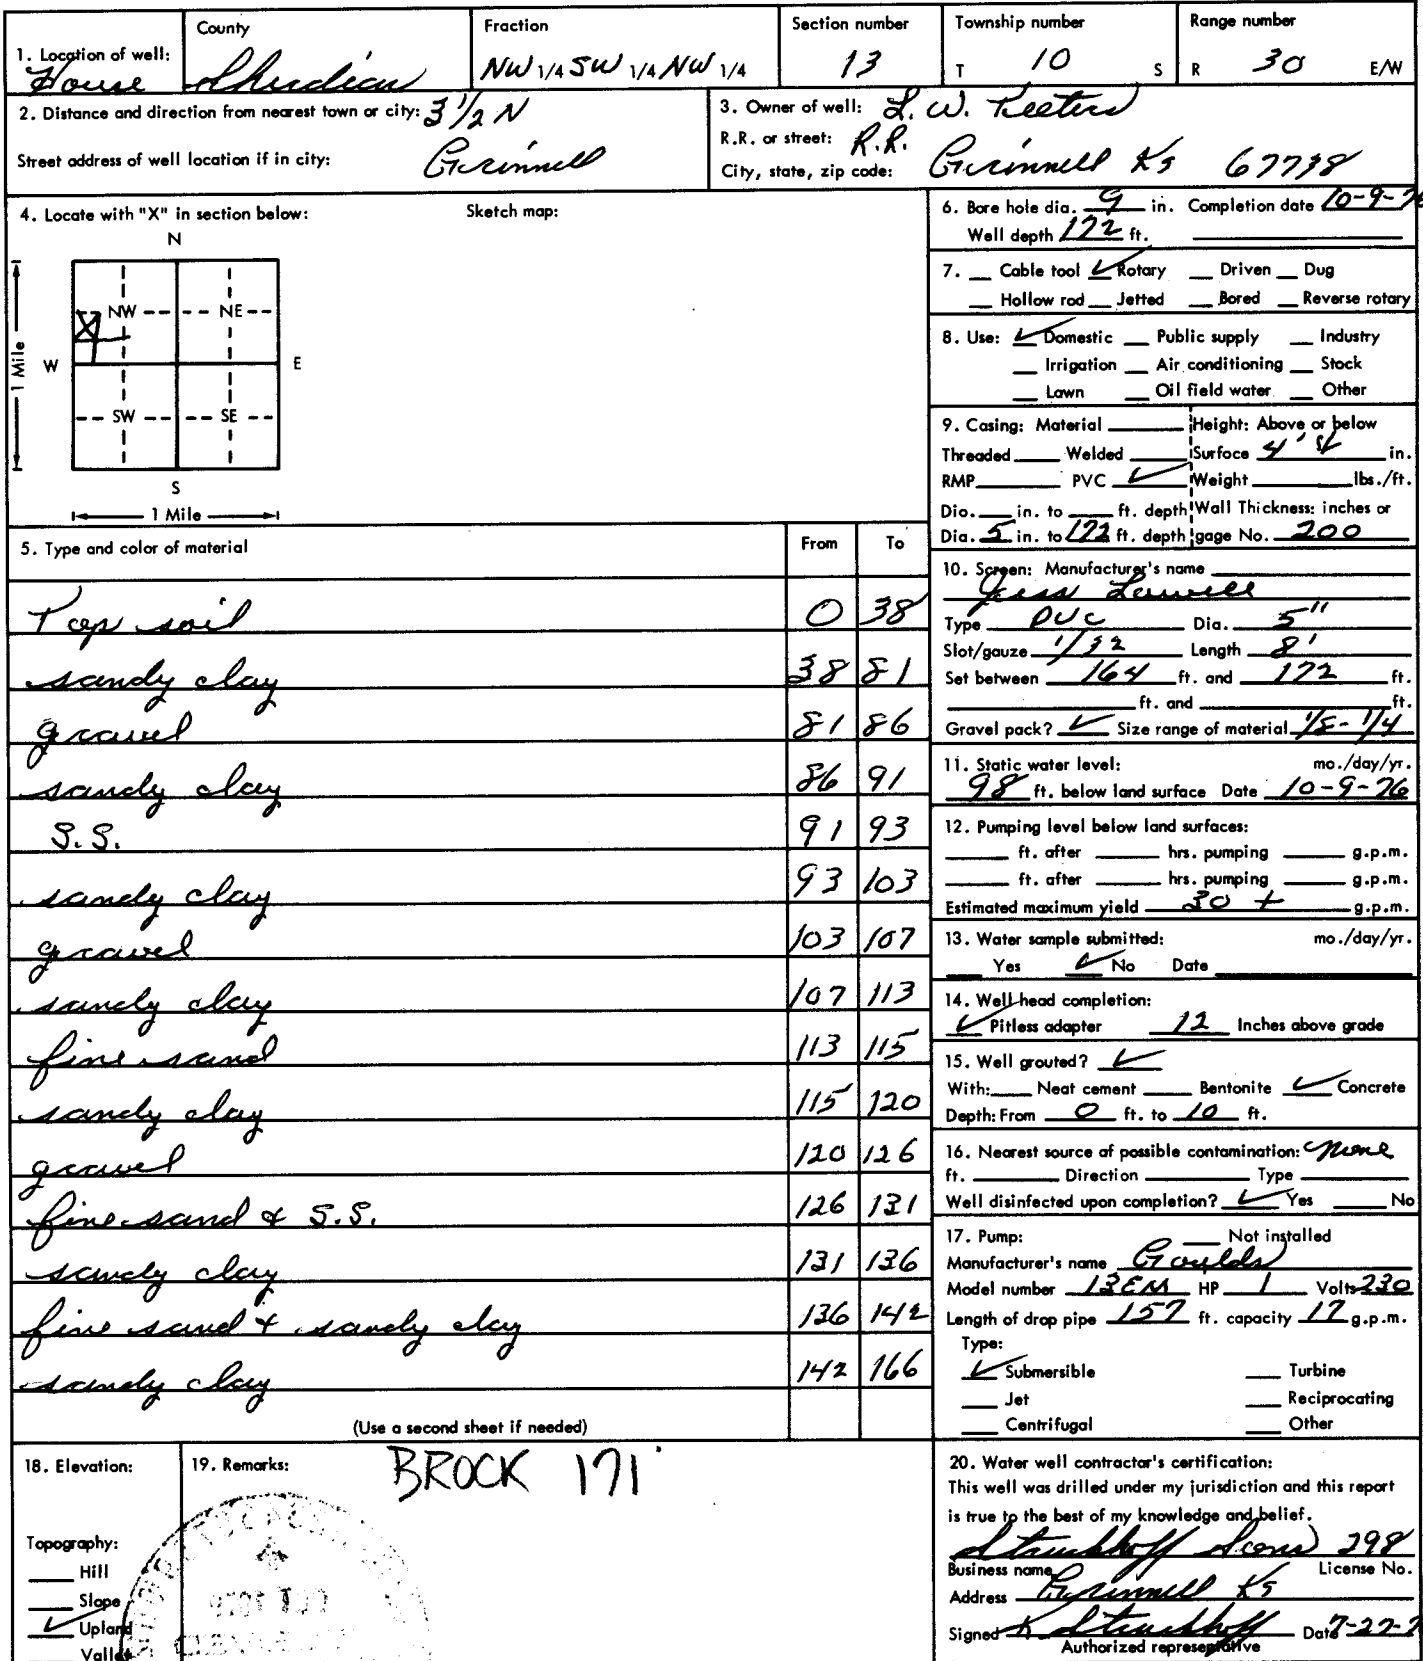 1. Location of well: House
County Sheridian
Fraction NW 1/4 SW 1/4 NW 1/4
Section number 13
Township number T 10 S
Range number R 30 E/W
2. Distance and direction from nearest town or city: 3 1/2 N
Street address of well location if in city: Grinnell
3. Owner of well: L. W. Teeters
R.R. or street: R.R.
City, state, zip code: Grinnell Ks 67738
4. Locate with "X" in section below: Sketch map:
N
NW NE
X
W E
1 Mile
SW SE
S
1 Mile
5. Type and color of material From To
Top soil 0 38
sandy clay 38 81
gravel 81 86
sandy clay 86 91
S.S. 91 93
sandy clay 93 103
gravel 103 107
sandy clay 107 113
fine sand 113 115
sandy clay 115 120
gravel 120 126
fine sand & S.S. 126 131
sandy clay 131 136
fine sand + sandy clay 136 142
sandy clay 142 166
(Use a second sheet if needed)
6. Bore hole dia. 9 in. Completion date 10-9-76
Well depth 172 ft.
7. Cable tool ✓ Rotary Driven Dug
Hollow rod Jetted Bored Reverse rotary
8. Use: ✓ Domestic Public supply Industry
Irrigation Air conditioning Stock
Lawn Oil field water Other
9. Casing: Material Height: Above or below
Threaded Welded Surface 4' ✓ in.
RMP PVC ✓ Weight lbs./ft.
Dia. in. to ft. depth Wall Thickness: inches or
Dia. 5 in. to 172 ft. depth gage No. 200
10. Screen: Manufacturer's name
Jess Lowell
Type PVC Dia. 5"
Slot/gauze 1/32 Length 8'
Set between 164 ft. and 172 ft.
ft. and ft.
Gravel pack? ✓ Size range of material 1/8 - 1/4
11. Static water level: mo./day/yr.
98 ft. below land surface Date 10-9-76
12. Pumping level below land surfaces:
ft. after hrs. pumping g.p.m.
ft. after hrs. pumping g.p.m.
Estimated maximum yield 30 + g.p.m.
13. Water sample submitted: mo./day/yr.
Yes ✓ No Date
14. Well head completion:
✓ Pitless adapter 12 Inches above grade
15. Well grouted? ✓
With: Neat cement Bentonite ✓ Concrete
Depth: From 0 ft. to 10 ft.
16. Nearest source of possible contamination: None
ft. Direction Type
Well disinfected upon completion? ✓ Yes No
17. Pump: Not installed
Manufacturer's name Goulds
Model number 13EM HP 1 Volts 230
Length of drop pipe 157 ft. capacity 17 g.p.m.
Type:
✓ Submersible Turbine
Jet Reciprocating
Centrifugal Other
18. Elevation:
Topography:
Hill
Slope
✓ Upland
Valley
19. Remarks: BROCK 171'
20. Water well contractor's certification:
This well was drilled under my jurisdiction and this report
is true to the best of my knowledge and belief.
Struckhoff Sons 298
Business name License No.
Address Grinnell Ks
Signed Struckhoff Date 7-27-7
Authorized representative